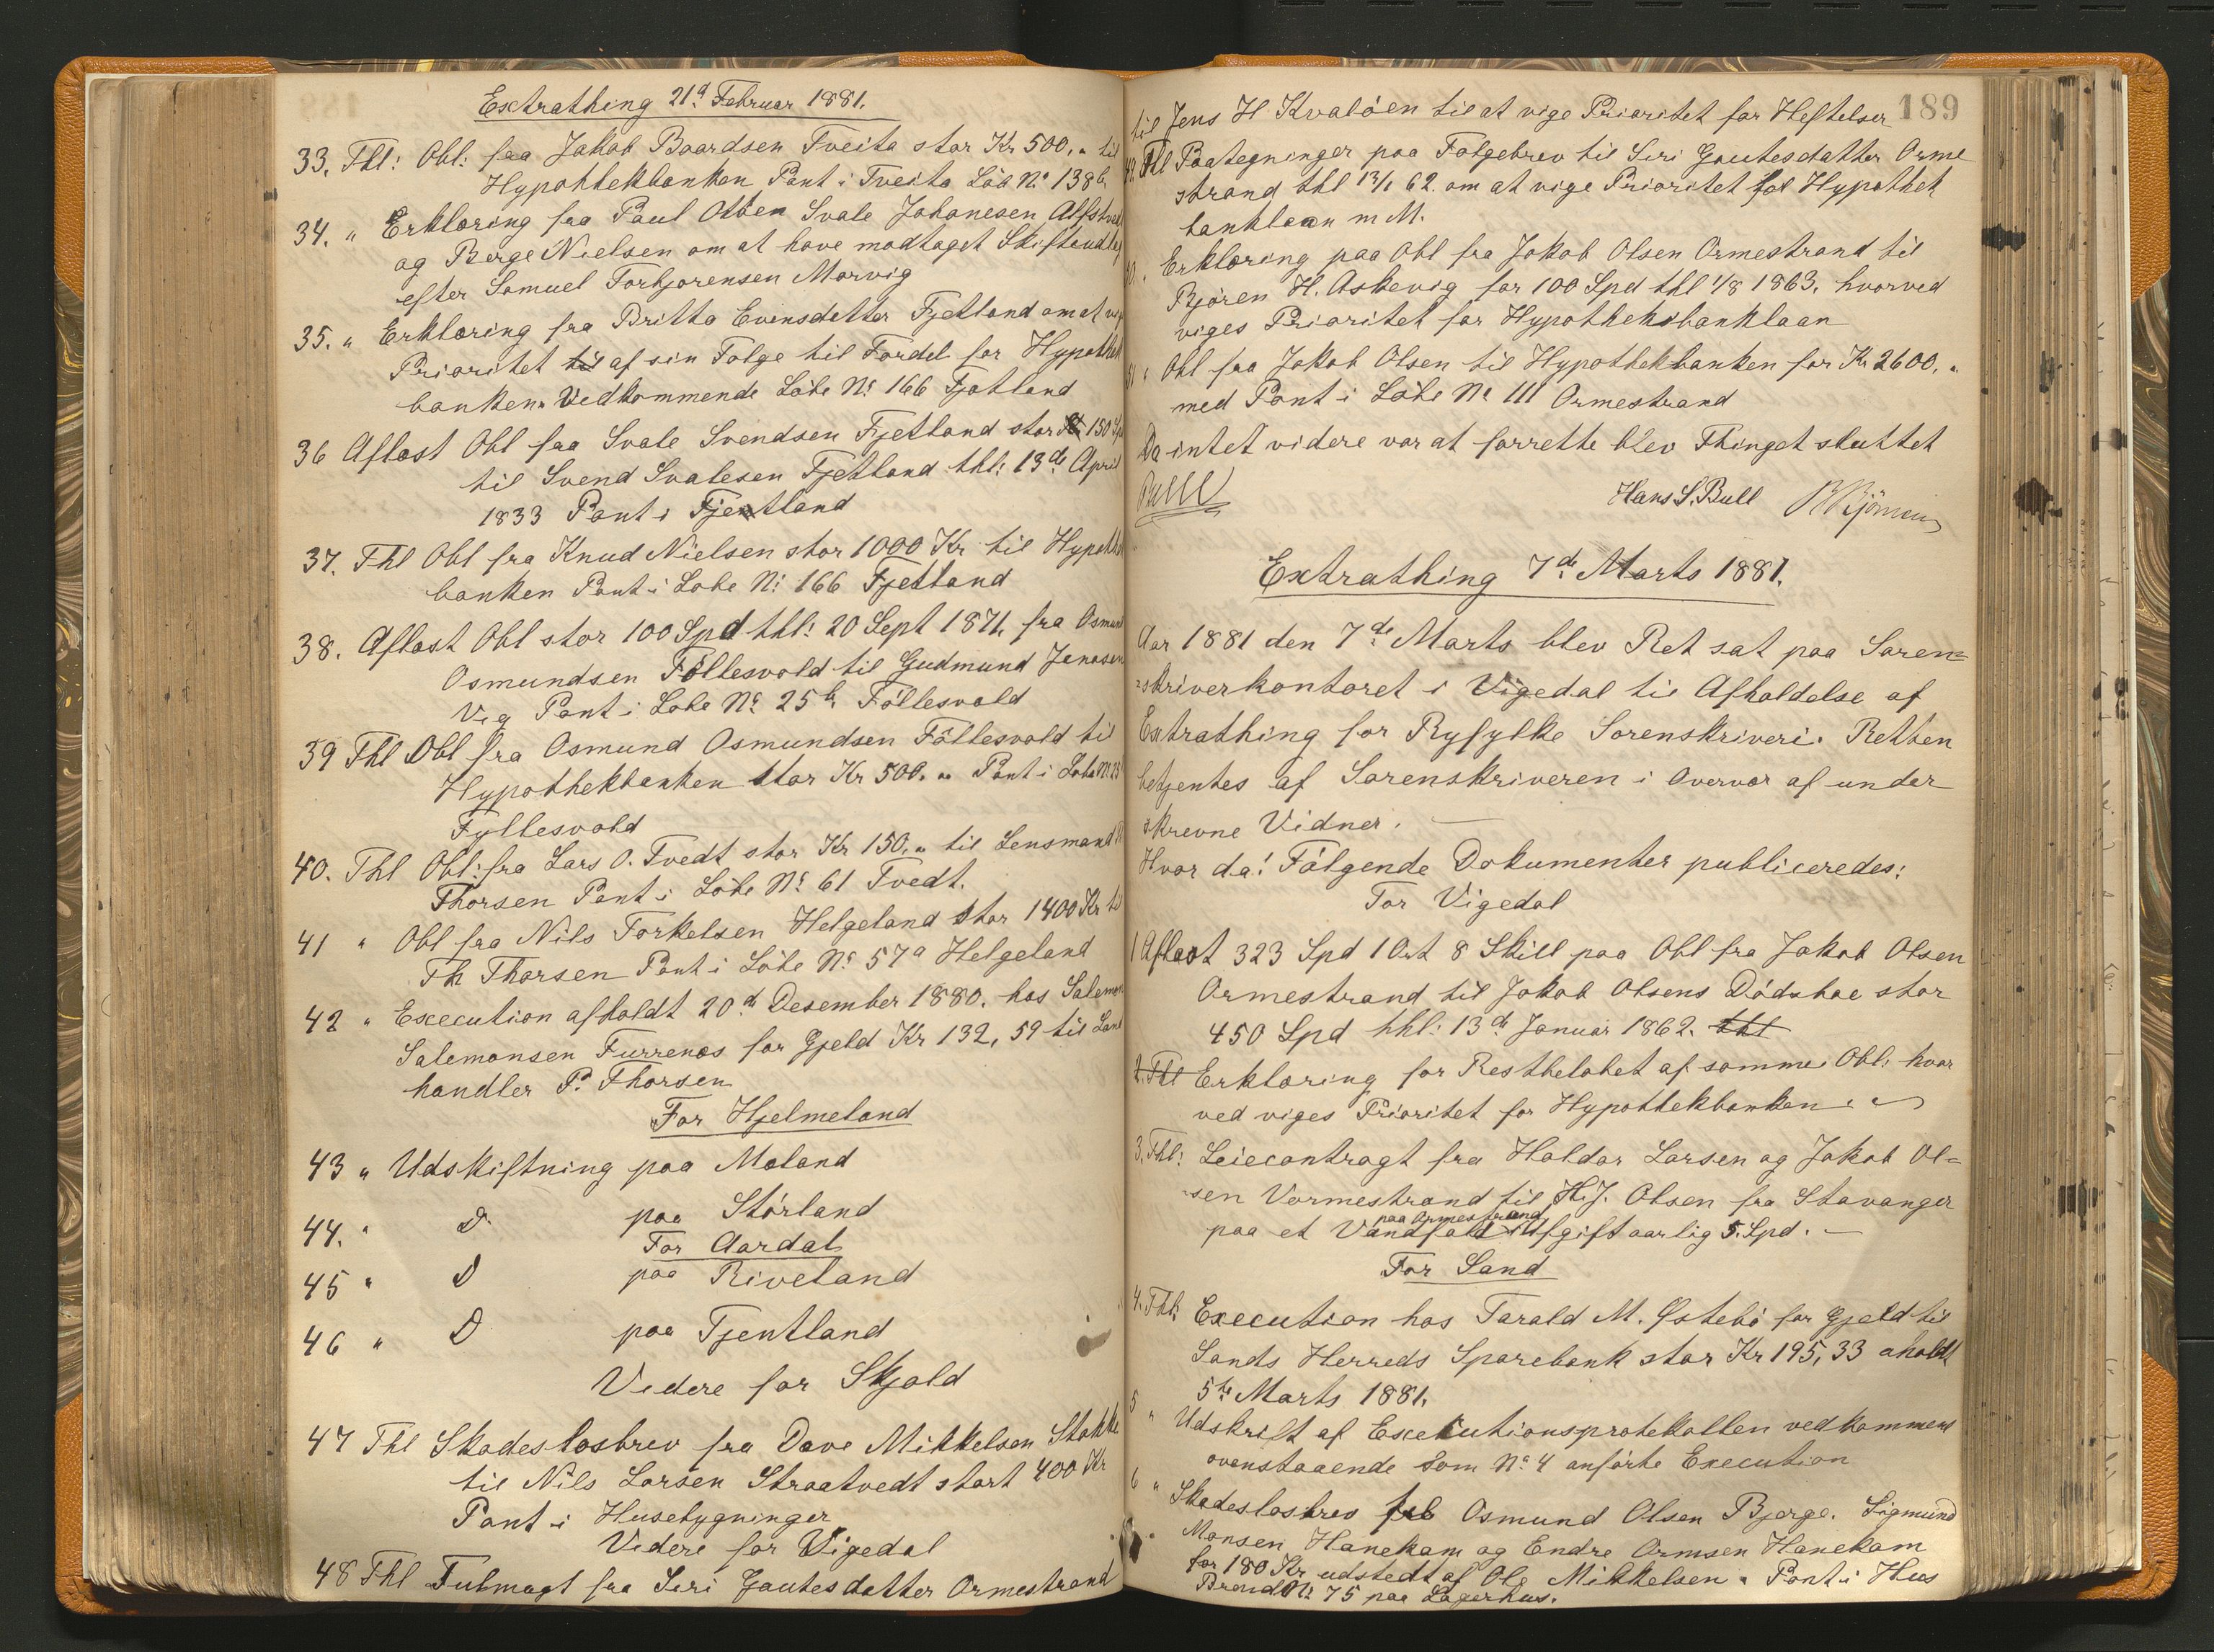 Extrathing 21d Februar 1881.
33. Thl: Obl: fra Jakob Baardsen Tveita stor Kr 500,„ til
Hypothekbanken Pant i Tveita Løb No 138b
34. „ Erklæring fra Paul Svale Johanesen
og Berge Nielsen om at have modtaget
efter Samuel Torbjørensen Marvig
35. „ Erklæring fra Britta Evensdatter Fjetland om at
Prioritet til af sin Følge til Fordel for Hypothek
banken Vedkommende Løbe No 166 Fjetland
36 Aflæst Obl fra Svale Svendsen Fjetland stor 150 Sp
til Svend Svalesen Fjetland thl: 13de April
1833 Pant i Fjentland
37. Thl Obl fra Knud Nielsen stor 1000 Kr til Hypothek
banken Pant i Løbe No 166 Fjetland
38. Aflæst Obl stor 100 Spd thl: 20 Sept 1871, fra Osmund
Osmundsen Føllesvold til Gudmund Janasen
Vig Pant i Løbe No 25b Føllesvold
39 Thl Obl fra Osmund Osmundsen Føllesvold til
Hypothekbanken stor Kr 500. „ Pant i Løbe No 25
Fyllesvold
40. Thl Obl: fra Lars O. Tvedt stor Kr 150,„ til Lensmand
Thorsen Pant i Løbe No 61 Tvedt.
41 „ Obl fra Nils Torkelsen Helgeland stor 1400 Kr til
Th Thorsen Pant i Løbe No 57a Helgeland
42 „ Execution afholdt 20d Desember 1880. hos
Salemonsen Furrenæs for Gjeld Kr 132,59 til
handler P. Thorsen
For Hjelmeland
43 „ Udskiftning paa Maland
44. „ D paa Størland
For Aardal
45 „ D paa Riveland
46 „ D paa Tjentland
Videre for Skjold
47 Thl Skadesløsbrev fra Dave Mikkelsen
til Nils Larsen Straatvedt stort 400 Kr
Pant i Husebygninger
Videre for Vigedal
48 Thl Fulmagt fra Siri Gautesdatter Ormestrand
189
til Jens H Kvaløen til at vige Prioritet for Heftelser
Thl Paategninger paa Følgebrev til Siri Gautesdatter Orme
strand thl 13/1 62. om at vige Prioritet for Hypothek
banklaan m M.
Erklæring paa Obl fra Jakob Olsen Ormestrand til
Bjøren H. Askevig for 100 Spd thl 1/8 1863. hvorved
viges Prioritet for Hypotheksbanklaan
„ Obl fra Jakob Olsen til Hypothekbanken for Kr 2600,„
med Pant i Løbe No 111 Ormestrand
Da intet videre var at forrette blev Thinget sluttet
Bull
Hans S. Bull
Extrathing 7de Marts 1881.
Aar 1881 den 7de Marts blev Ret sat paa Soren=
=skriverkontoret i Vigedal til Afholdelse af
Extrathing for Ryfylke Sorenskriveri. Retten
betjentes af Sorenskriveren i Overvær af under
skrevne Vidner. —
Hvor da! Følgende Dokumenter publiceredes:
For Vigedal
1 Aflæst 323 Spd 1 Ort 8 Skill paa Obl fra Jakob Olsen
Ormestrand til Jakob Olsens Dødsboe stor
450 Spd thl: 13de Januar 1862. thl
2. Thl Erklæring for Restbeløbet af samme Obl: hvor
ved viges Prioritet for Hypothekbanken.
3. Thl: Leiecontragt fra Haldor Larsen og Jakob Ol=
=sen Vormestrand til H.J. Olsen fra Stavanger
paa Ormestrand
paa et Vandfald Afgift aarlig 5. Spd. —
For Sand
4. Thl. Execution hos Tarald M. Østebø for Gjeld til
Sands Herreds Sparebank stor Kr 195,33 aholdt
5te Marts 1881.
5 „ Udskrift af Executionsprotokollen vedkommend
ovenstaaende som No 4 anførte Execution
6 „ Skadesløsbrev Osmund Olsen Bjerge. Sigmund
Monsen Hanekam og Endre Ormsen Hanekam
for 180 Kr udstedt af Ole Mikkelsen. Pant i Hus
Brand No 75 paa Lagerhus.